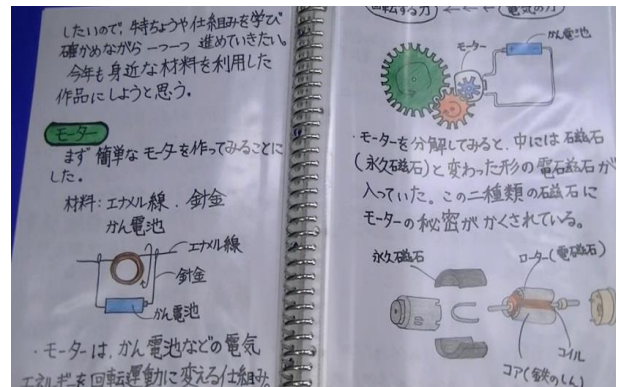 したいので、特ちょうや仕組みを学び
確かめながら一つ一つ進めていきたい。
今年も身近な材料を利用した
作品にしようと思う。
モーター
まず簡単なモータを作ってみることに
した。
材料：エナメル線．針金
かん電池
エナメル線
針金
かん電池
・モーターは、かん電池などの電気
エネルギーを回転運動に変える仕組み。
回転する力
電気の力
モーター
かん電池
・モーターを分解してみると、中には磁石
(永久磁石)と変わった形の電石磁石が
入っていた。この二種類の磁石に
モーターの秘密がかくされている。
永久磁石
ローター(電磁石)
コイル
コア(鉄のしん)